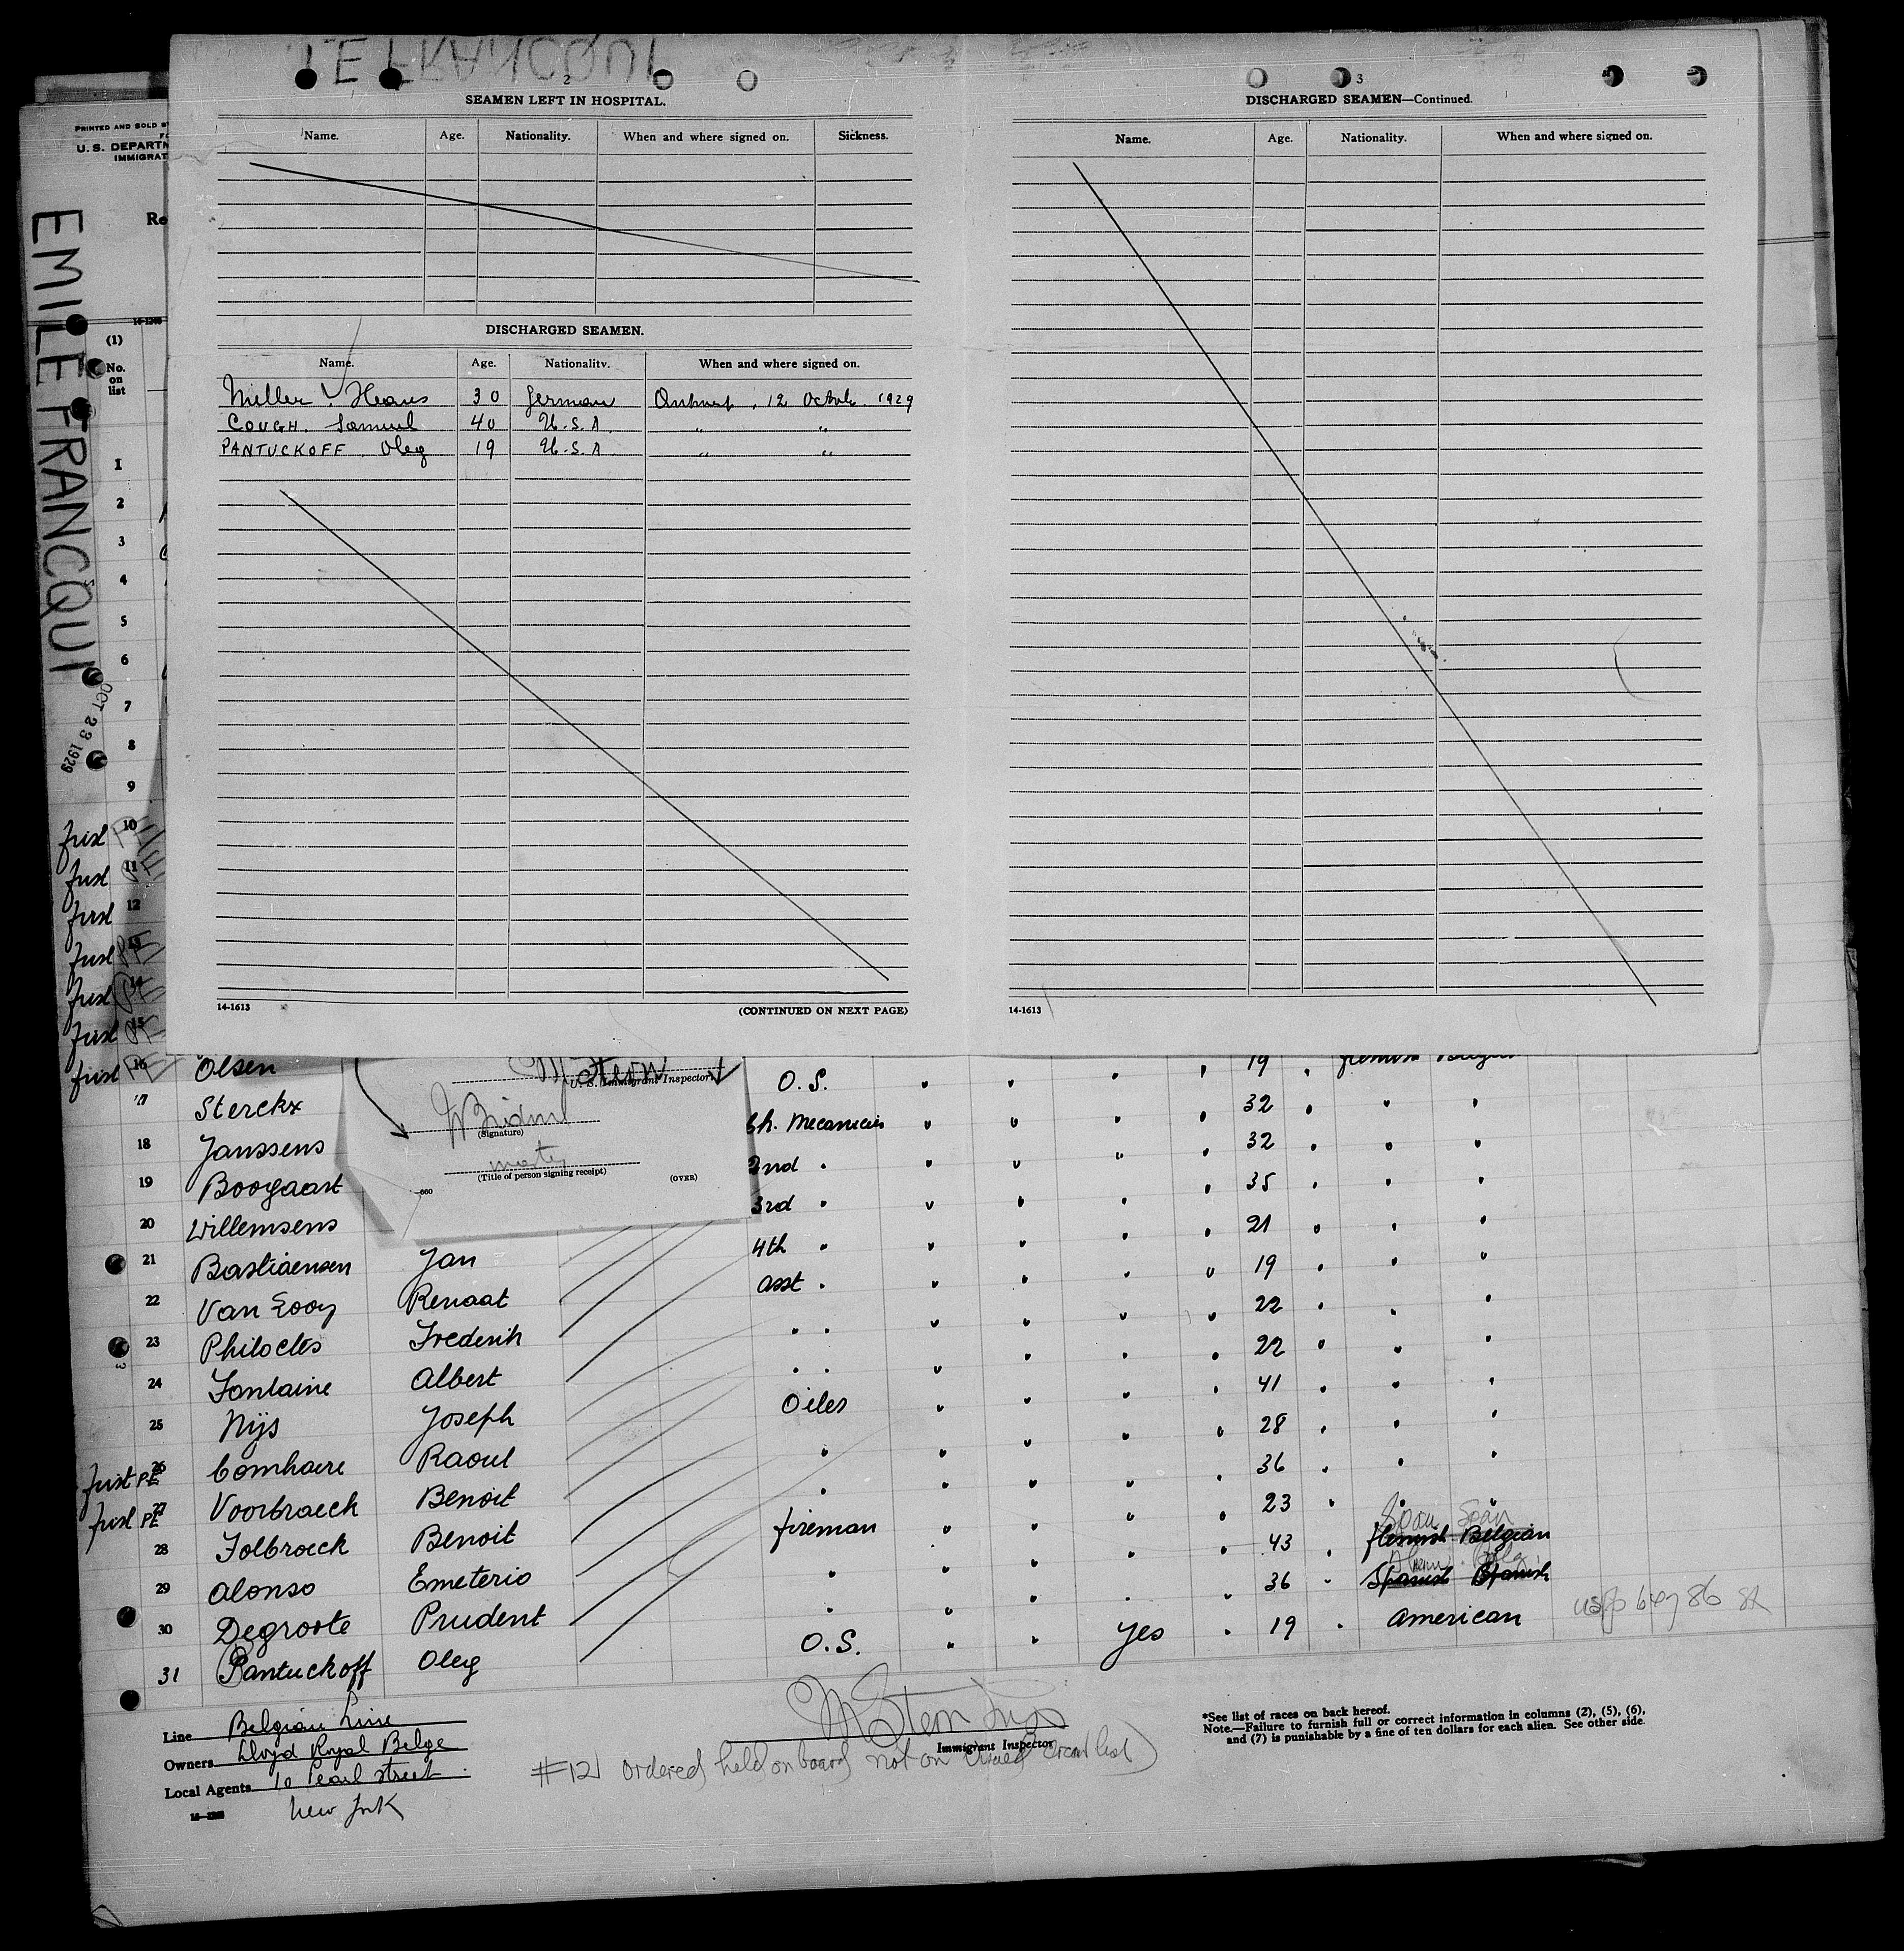 2
SEAMEN LEFT IN HOSPITAL.
Name. Age. Nationality. When and where signed on. Sickness.
DISCHARGED SEAMEN.
Name. Age. Nationality. When and where signed on.
Miller, Hans 30 German 12 1929
COUGH. Samuel 40 U.S.A. " "
PANTUCKOFF. Oleg 19 U.S.A. " "
14-1613 (CONTINUED ON NEXT PAGE)
3
DISCHARGED SEAMEN—Continued.
Name. Age. Nationality. When and where signed on.
14-1613
PRINTED AND SOLD
U.S. DEPARTM
IMMIGRAT
Re
EMILE FRANCQUI
OCT 23 1929
(1)
No.
on
list
1
2
3
4
5
6
7
8
9
first 10
first 11
first 12
first 13
first 14
first 15
first 16 Olsen O.S. 19
17 Sterckx Ch. Mecanicien 32
18 Janssens 2nd 32
19 Boogaart 3rd 35
20 Willemsens 4th 21
21 Bastiaensen Jan asst 19
22 Van Looy Renaat 22
23 Philocles Frederik 22
24 Fontaine Albert Oiler 41
25 Nijs Joseph 28
first PE 26 Comhaere Raoul 36
first PE 27 Voorbraeck Benoit fireman 23
28 Folbroeck Benoit 43 flemish Belgian
29 Alonso Emeterio 36 Spanish Spanish
30 Degroote Prudent O.S. yes 19 American
31 Pantuckoff Oleg
Span Span
M Stern
U.S. Immigrant Inspector
(Signature)
(Title of person signing receipt)
(OVER)
—660
Line Belgian Line
Owners Lloyd Royal Belge
Local Agents 10 Pearl Street
New York
M Stern
Immigrant Inspector
#12 ordered held on board not on visaed crew list)
*See list of races on back hereof.
Note.—Failure to furnish full or correct information in columns (2), (5), (6),
and (7) is punishable by a fine of ten dollars for each alien. See other side.